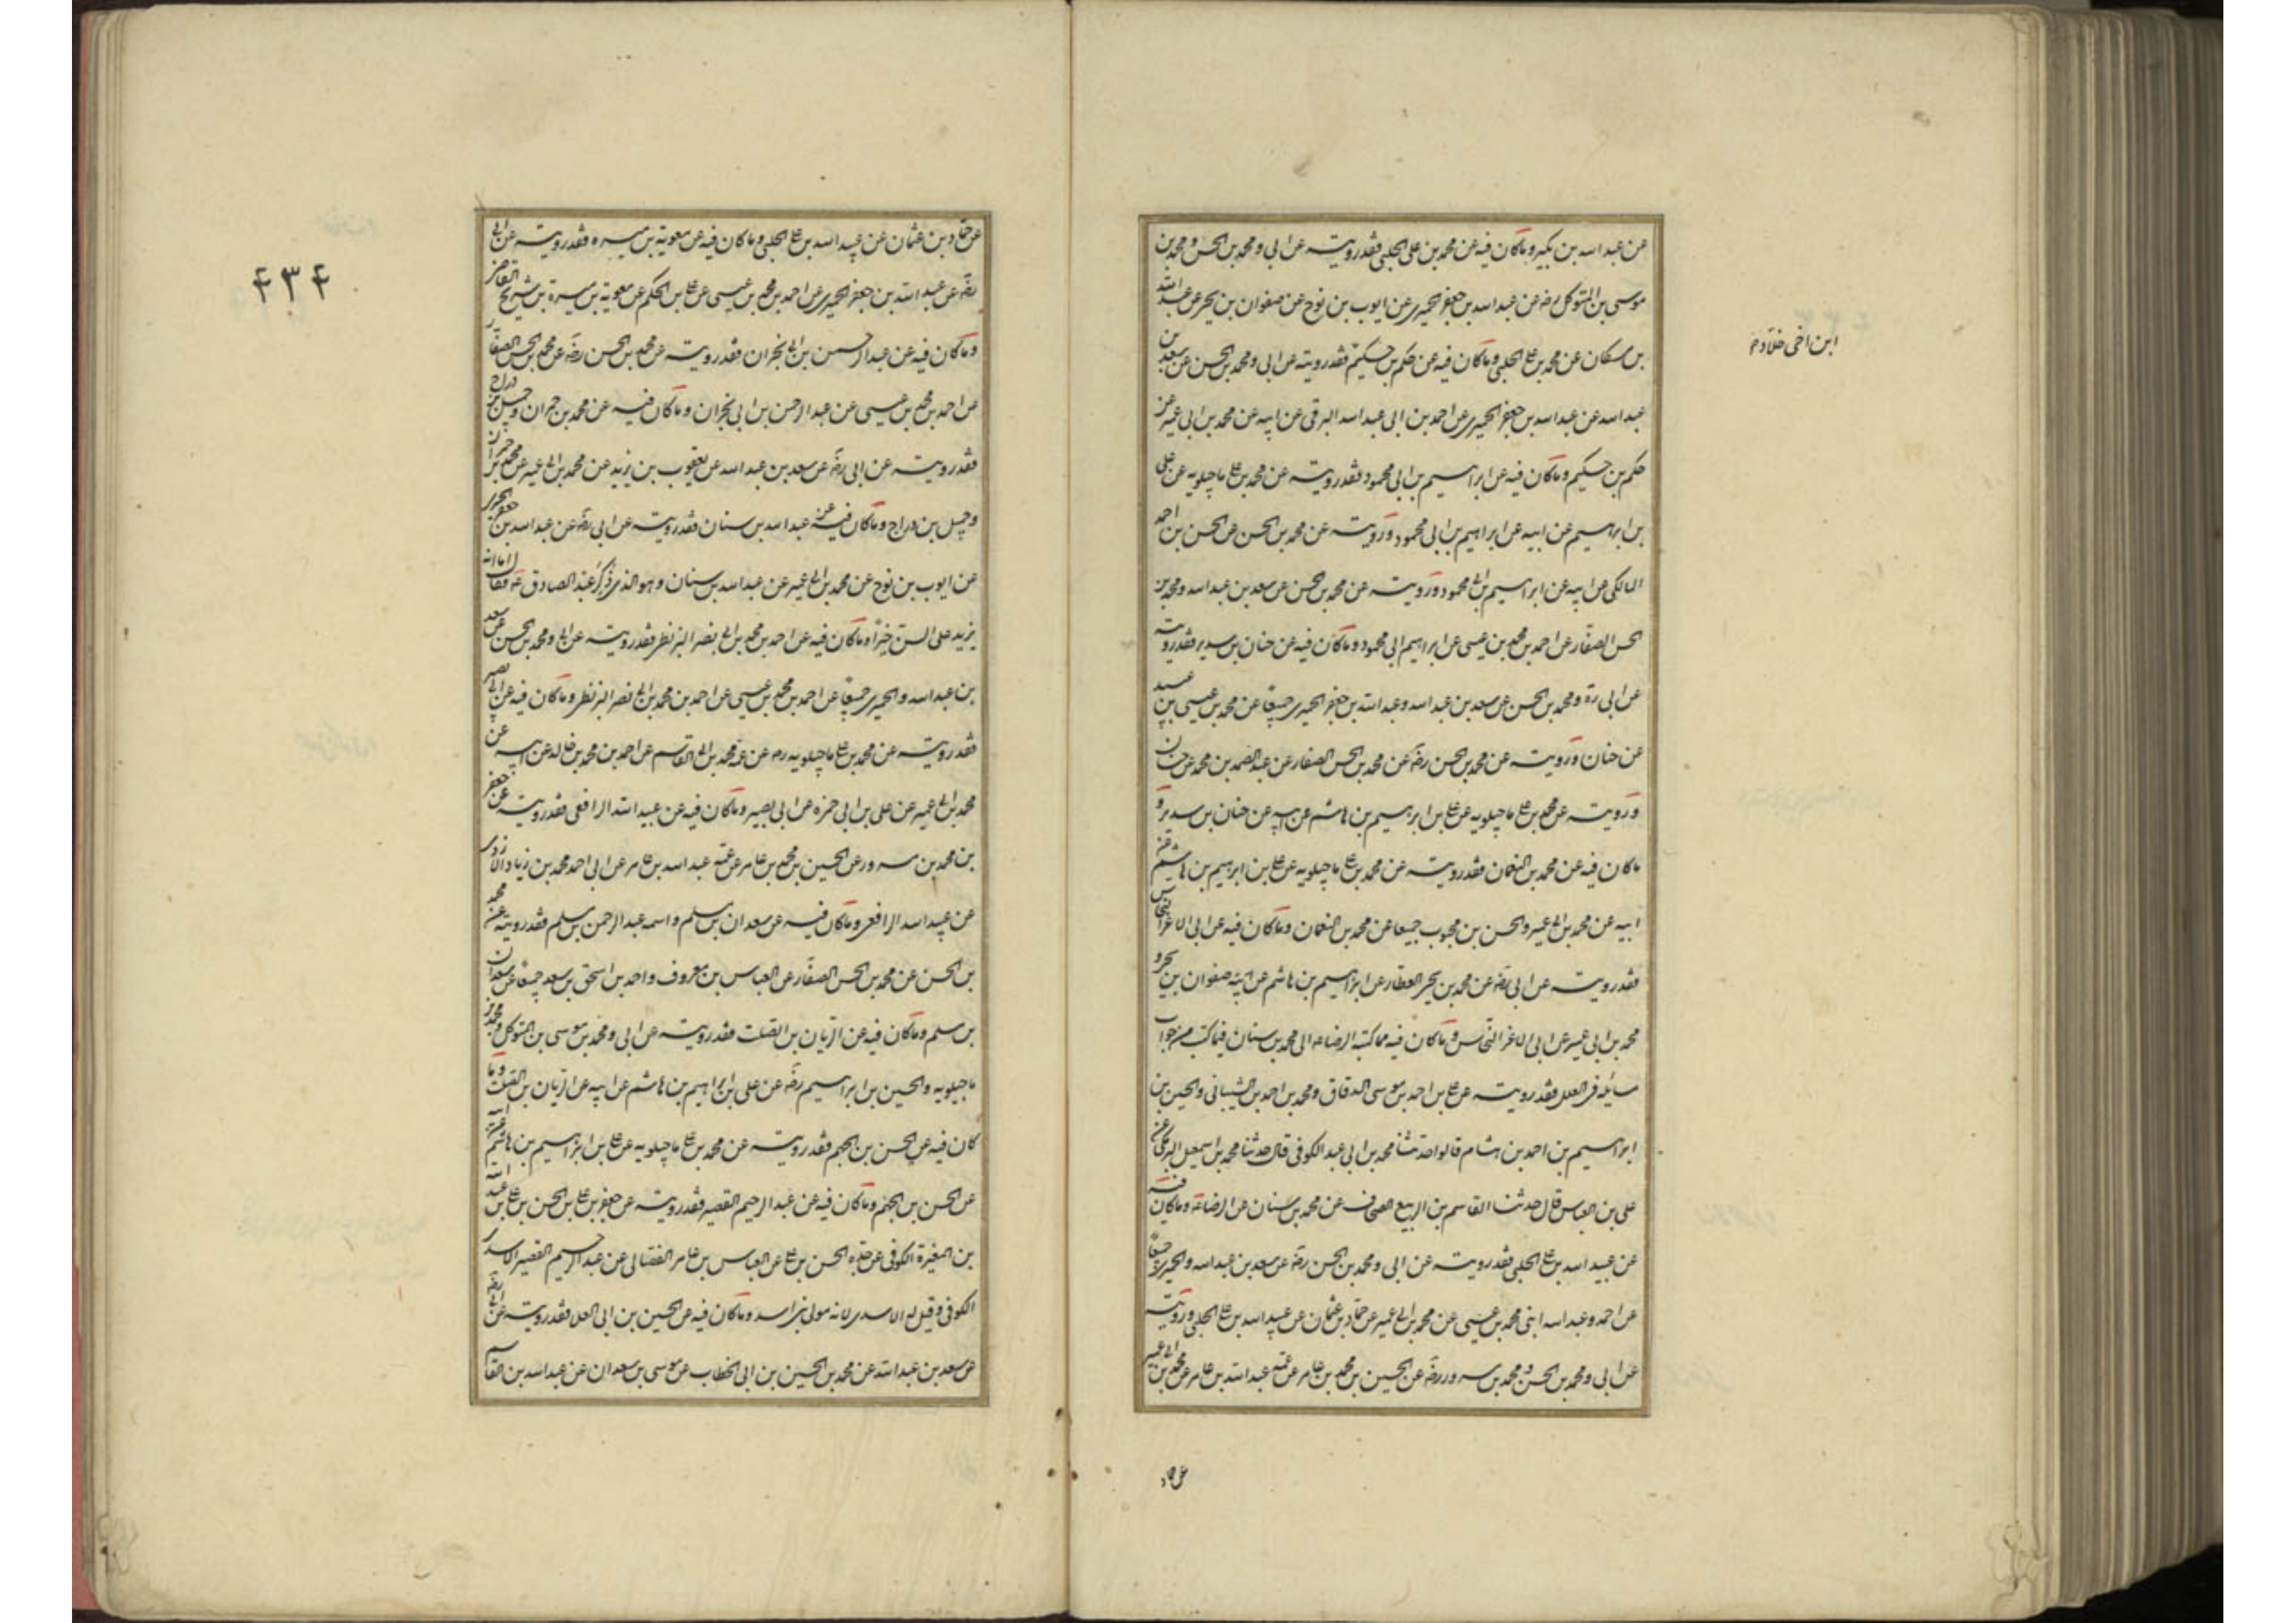 عن عبد الله بن بكير وما كان فيه عن محمد بن علي الحلبي فقد رويته عن ابي ومحمد بن الحسن ومحمد بن
موسى بن المتوكل رضه عن عبد الله بن جعفر الحميري عن ايوب بن نوح عن صفوان بن يحيى عن عبد الله
بن مسكان عن محمد بن علي الحلبي وما كان فيه عن حكم بن حكيم فقد رويته عن ابي ومحمد بن الحسن عن سعد بن
ابن اخي خلاد م
عبد الله عن عبد الله بن جعفر الحميري عن احمد بن ابي عبد الله البرقي عن ابيه عن محمد بن ابي عمير عن
حكم بن حكيم وما كان فيه عن ابراهيم بن ابي محمود فقد رويته عن محمد بن علي ماجيلويه عن علي
بن ابراهيم عن ابيه عن ابراهيم بن ابي محمود ورويته عن محمد بن الحسن عن الحسن بن احمد
المالكي عن ابيه عن ابراهيم بن ابي محمود ورويته عن محمد بن الحسن عن سعد بن عبد الله ومحمد بن
الحسن الصفار عن احمد بن محمد بن عيسى عن ابراهيم ابي محمود وما كان فيه عن حنان بن سدير فقد رويته
عن ابي ره ومحمد بن الحسن عن سعد بن عبد الله وعبد الله بن جعفر الحميري جميعا عن محمد بن عيسى بن عبيد
عن حنان ورويته عن محمد بن الحسن رضه عن محمد بن الحسن الصفار عن عبد الصمد بن محمد عن حنان
ورويته عن محمد بن علي ماجيلويه عن علي بن ابرهيم بن هاشم عن ابيه عن حنان بن سدير و
ما كان فيه عن محمد بن النعمان فقد رويته عن محمد بن علي ماجيلويه عن علي بن ابرهيم بن هاشم عن
ابيه عن محمد بن ابي عمير والحسن بن محبوب جميعا عن محمد بن النعمان وما كان فيه عن ابي الاغر النخاس
فقد رويته عن ابي رضه عن محمد بن يحيى العطار عن ابراهيم بن هاشم عن ابيه صفوان بن يحيى و
محمد بن ابي عمير عن ابي الاغر النخاس وما كان فيه مما كتبه الرضا عه الى محمد بن سنان فيما كتب من جواب
مسائله في العلل فقد رويته عن علي بن احمد بن موسى الدقاق ومحمد بن احمد بن الشيباني والحسين بن
ابراهيم بن احمد بن هشام قالوا حدثنا محمد بن ابي عبد الكوفي قال حدثنا محمد بن اسمعيل البرمكي عن
علي بن العباس قال حدثنا القاسم بن الربيع الصحاف عن محمد بن سنان عن الرضا عه وما كان فيه
عن عبيد الله بن علي الحلبي فقد رويته عن ابي ومحمد بن الحسن رضه عن سعد بن عبد الله والحميري جميعا
عن احمد وعبد الله ابني محمد بن عيسى عن محمد بن ابي عمير عن حماد بن عثمان عن عبيد الله بن علي الحلبي ورويته
عن ابي ومحمد بن الحسن ومحمد بن مسرور رضه عن الحسين بن محمد بن عامر عن عمه عبد الله بن عامر عن محمد بن ابي عمير
عن حماد
٤٣٤
عن حماد بن عثمان عن عبيد الله بن علي الحلبي وما كان فيه عن معوية بن ميسره فقد رويته عن ابي
رضه عن عبد الله بن جعفر الحميري عن احمد بن محمد بن عيسى عن علي بن الحكم عن معوية بن ميسرة بن شريح القاضي
وما كان فيه عن عبد الرحمن بن ابي نجران فقد رويته عن محمد بن الحسن رضه عن محمد بن الحسن الصفار
عن احمد بن محمد بن عيسى عن عبد الرحمن بن ابي نجران وما كان فيه عن محمد بن حمران وجميل بن دراج
فقد رويته عن ابي رضه عن سعد بن عبد الله عن يعقوب بن يزيد عن محمد بن ابي عمير عن محمد بن حمران
وجميل بن دراج وما كان فيه عن عبد الله بن سنان فقد رويته عن ابي رضه عن عبد الله بن جعفر الحميري
عن ايوب بن نوح عن محمد بن ابي عمير عن عبد الله بن سنان وهو الذي ذكر عند الصادق عه فقال اما انه
يزيد على السن خيرا وما كان فيه عن احمد بن محمد بن ابي نصر البزنطي فقد رويته عن ابي ومحمد بن الحسن عن سعد
بن عبد الله والحميري جميعا عن احمد بن محمد بن عيسى عن احمد بن محمد بن ابي نصر البزنطي وما كان فيه عن ابي بصير
فقد رويته عن محمد بن علي ماجيلويه ره عن عمه محمد بن ابي القاسم عن احمد بن محمد بن خالد عن ابيه عن
محمد بن ابي عمير عن علي بن ابي حمزه عن ابي بصير وما كان فيه عن عبيد الله الرافقي فقد رويته عن جعفر
بن محمد بن مسرور عن الحسين بن محمد بن عامر عن عمه عبد الله بن عامر عن ابي احمد محمد بن زياد الازدي
عن عبيد الله الرافقي وما كان فيه عن سعدان بن مسلم واسمه عبد الرحمن بن مسلم فقد رويته عن محمد
بن الحسن عن محمد بن الحسن الصفار عن العباس بن معروف واحمد بن اسحق بن سعد جميعا عن سعدان
بن مسلم وما كان فيه عن الريان بن الصلت فقد رويته عن ابي ومحمد بن موسى بن المتوكل ومحمد بن
ماجيلويه والحسين بن ابراهيم رضه عن علي بن ابراهيم بن هاشم عن ابيه عن الريان بن الصلت وما
كان فيه عن الحسن بن الجهم فقد رويته عن محمد بن علي ماجيلويه عن علي بن ابراهيم بن هاشم عن ابيه
عن الحسن بن الجهم وما كان فيه عن عبد الرحيم القصير فقد رويته عن جعفر بن علي بن الحسن بن علي بن عبد الله
بن المغيرة الكوفي عن جده الحسن بن علي عن العباس بن عامر القصباني عن عبد الرحيم القصير الاسدي
الكوفي وقيل له الاسدي لانه مولى بني اسد وما كان فيه عن الحسين بن ابي العلا فقد رويته عن ابي رضه
عن سعد بن عبد الله عن محمد بن الحسين بن ابي الخطاب عن موسى بن سعدان عن عبد الله بن القاسم